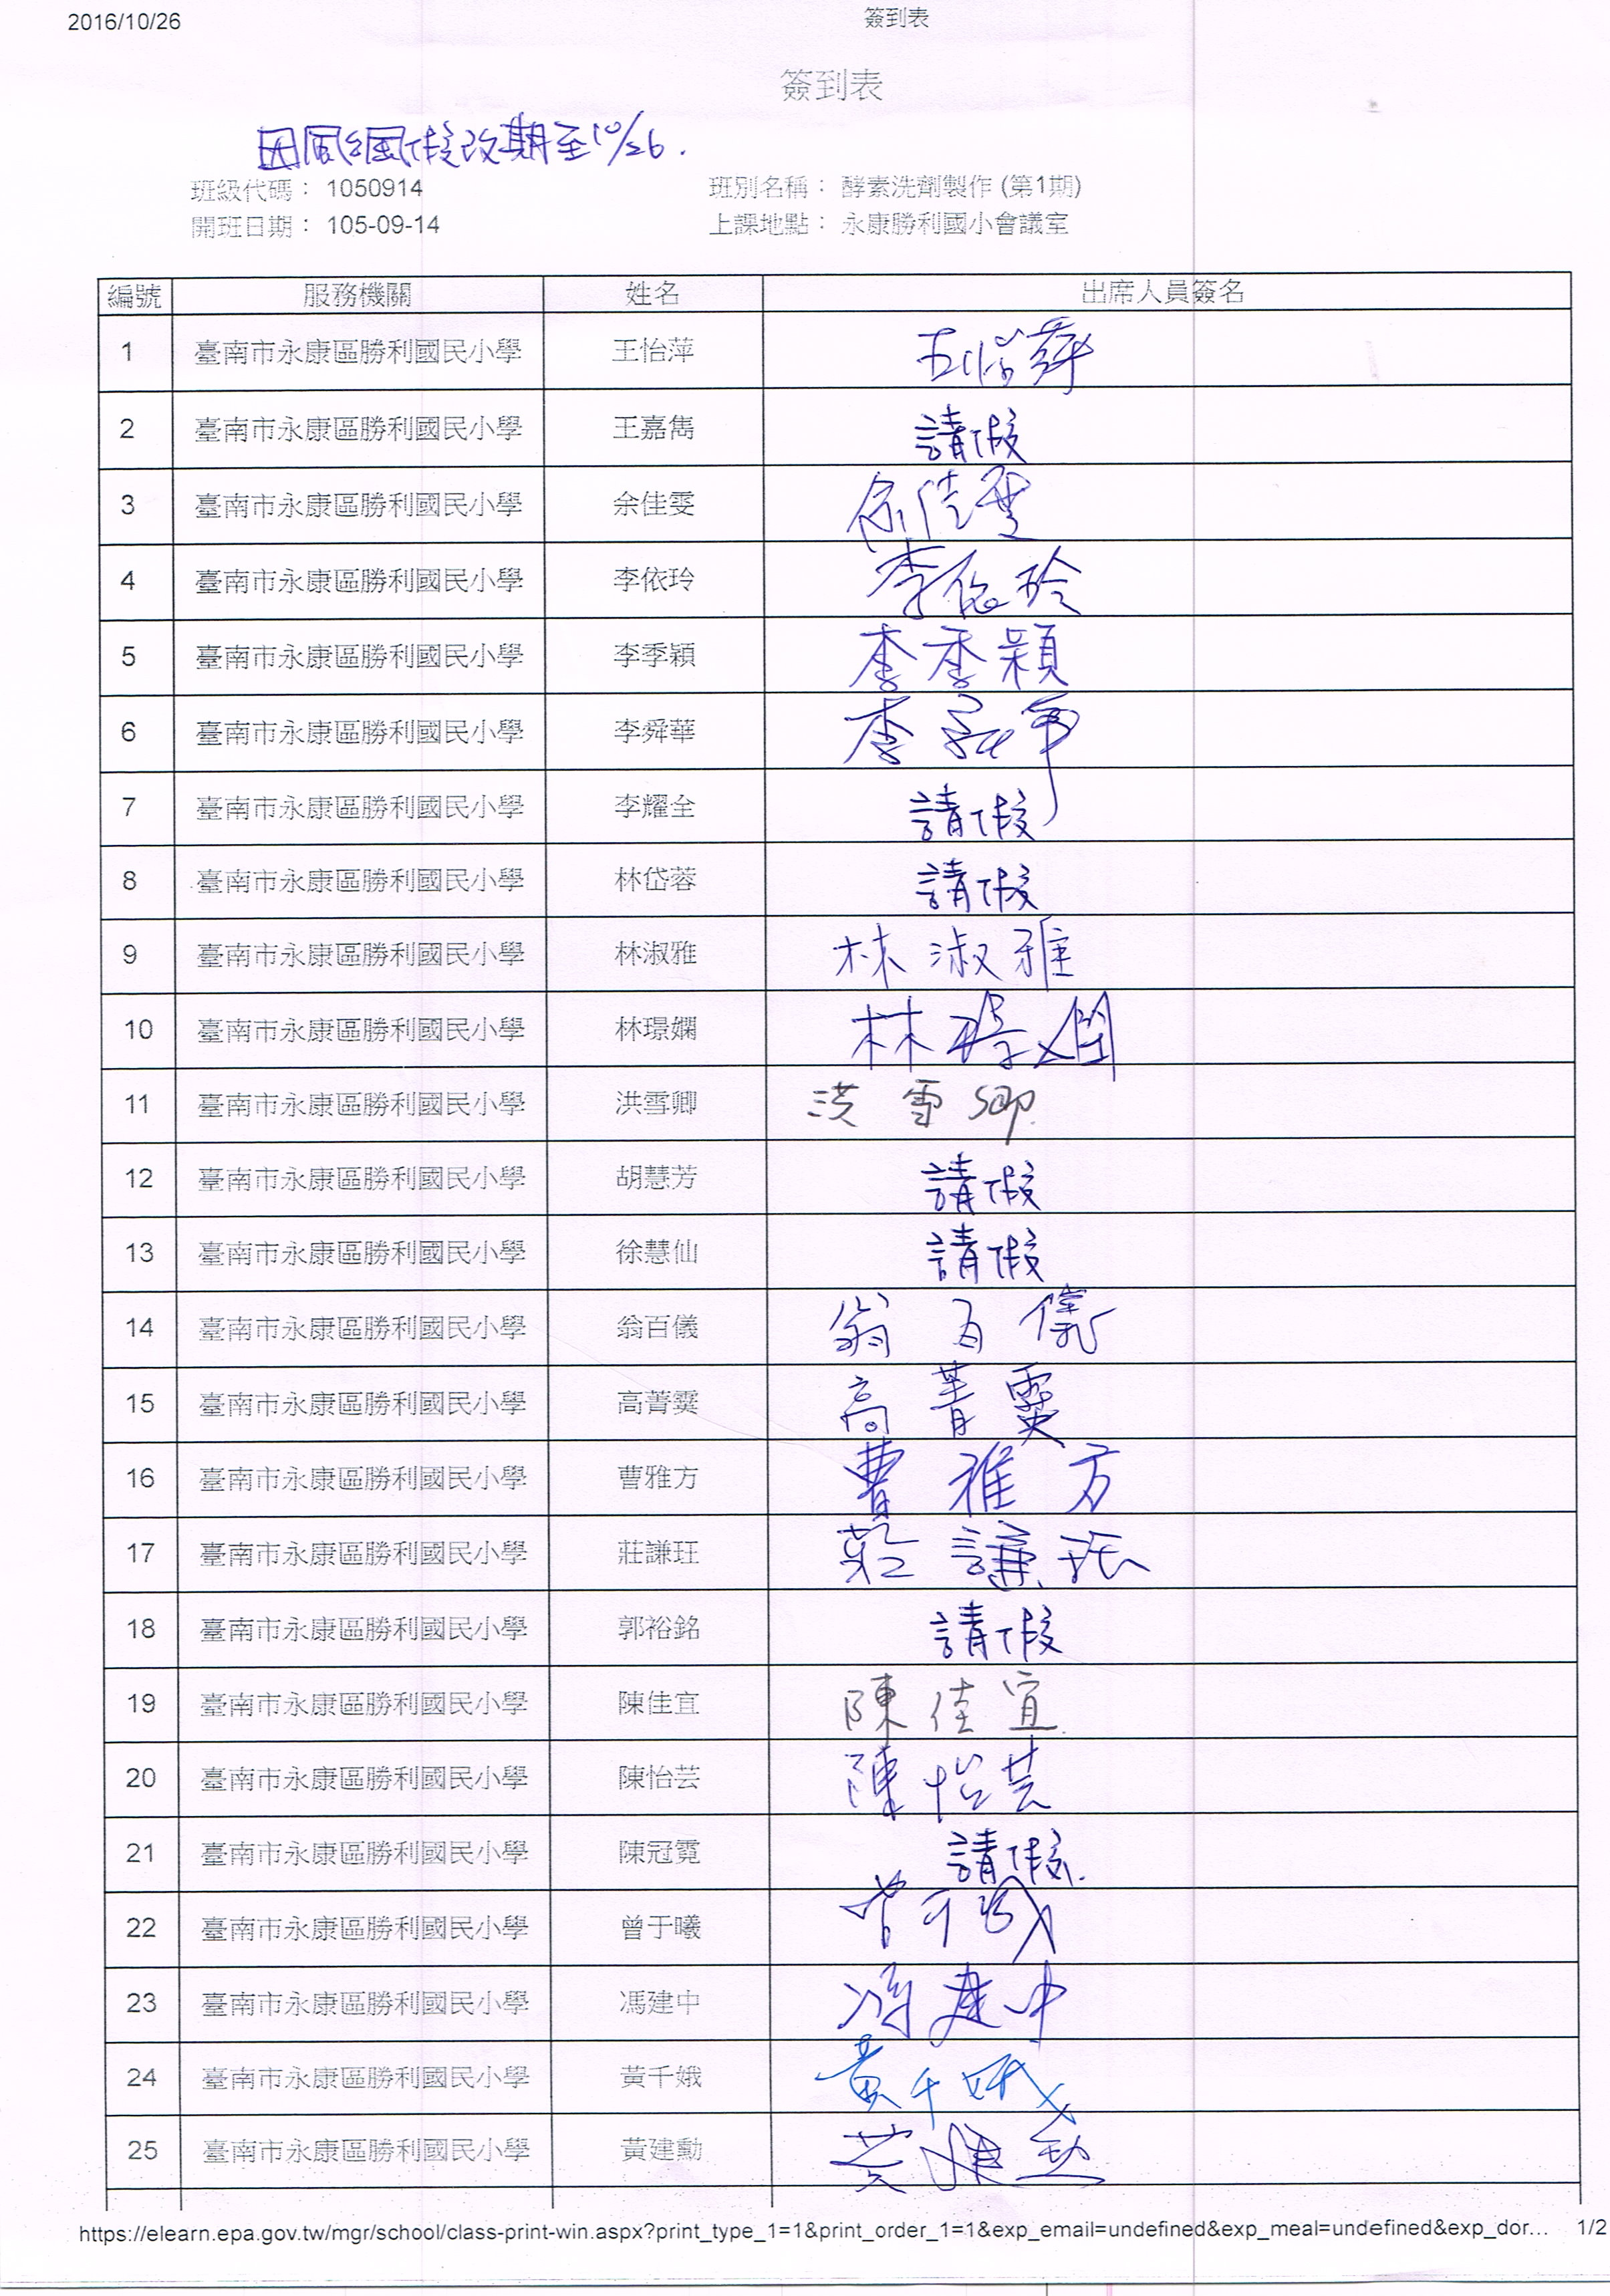 2016/10/26 簽到表
簽到表
因風颱假改期至10/26.
班級代碼： 1050914 班別名稱： 酵素洗劑製作 (第1期)
開班日期： 105-09-14 上課地點： 永康勝利國小會議室
編號 服務機關 姓名 出席人員簽名
1 臺南市永康區勝利國民小學 王怡萍 王怡萍
2 臺南市永康區勝利國民小學 王嘉雋 請假
3 臺南市永康區勝利國民小學 余佳雯 余佳雯
4 臺南市永康區勝利國民小學 李依玲 李依玲
5 臺南市永康區勝利國民小學 李季穎 李季穎
6 臺南市永康區勝利國民小學 李舜華 李舜華
7 臺南市永康區勝利國民小學 李耀全 請假
8 臺南市永康區勝利國民小學 林岱蓉 請假
9 臺南市永康區勝利國民小學 林淑雅 林淑雅
10 臺南市永康區勝利國民小學 林璟嫻 林璟嫻
11 臺南市永康區勝利國民小學 洪雪卿 洪雪卿
12 臺南市永康區勝利國民小學 胡慧芳 請假
13 臺南市永康區勝利國民小學 徐慧仙 請假
14 臺南市永康區勝利國民小學 翁百儀 翁百儀
15 臺南市永康區勝利國民小學 高菁霙 高菁霙
16 臺南市永康區勝利國民小學 曹雅方 曹雅方
17 臺南市永康區勝利國民小學 莊謙玨 莊謙玨
18 臺南市永康區勝利國民小學 郭裕銘 請假
19 臺南市永康區勝利國民小學 陳佳宜 陳佳宜
20 臺南市永康區勝利國民小學 陳怡芸 陳怡芸
21 臺南市永康區勝利國民小學 陳冠霓 請假.
22 臺南市永康區勝利國民小學 曾于曦 曾于曦
23 臺南市永康區勝利國民小學 馮建中 馮建中
24 臺南市永康區勝利國民小學 黃千娥 黃千娥
25 臺南市永康區勝利國民小學 黃建勳 黃建勳
https://elearn.epa.gov.tw/mgr/school/class-print-win.aspx?print_type_1=1&print_order_1=1&exp_email=undefined&exp_meal=undefined&exp_dor... 1/2